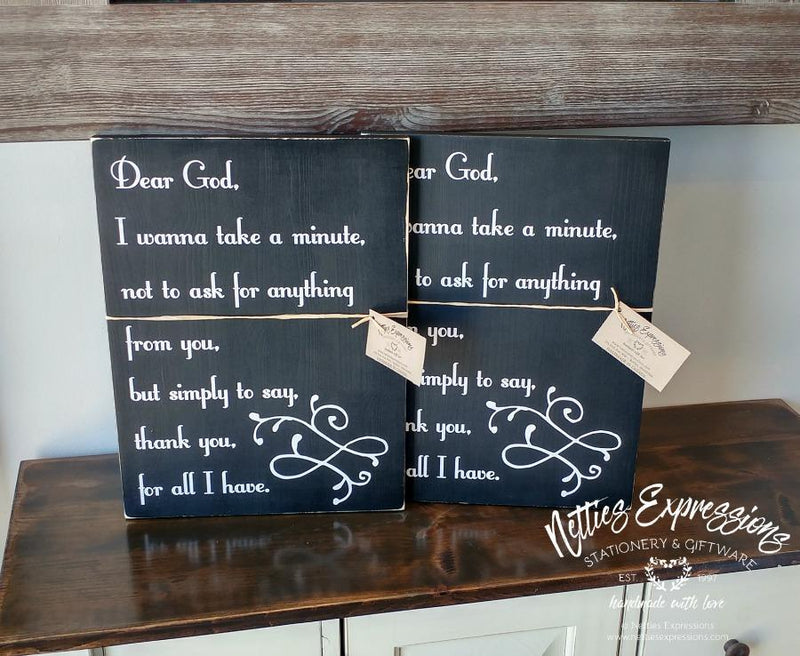 Dear God,
I wanna take a minute,
not to ask for anything
from you,
but simply to say,
thank you,
for all I have.
ear God,
wanna take a minute,
to ask for anything
m you,
simply to say,
nk you,
all I have.
Netties Expressions
Netties Expressions
Netties Expressions
STATIONERY & GIFTWARE
EST. 1997
handmade with love
© Netties Expressions
www.nettiesexpressions.com